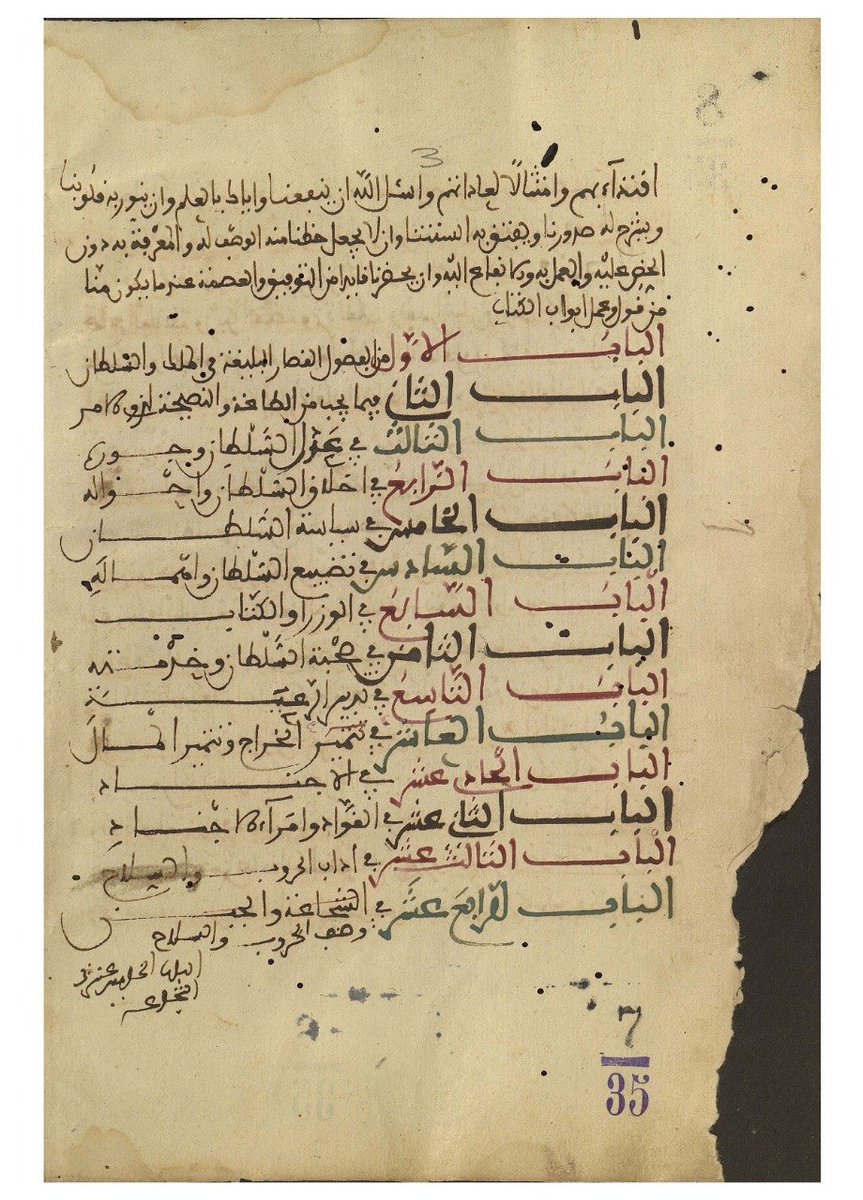 3
اقتداء بهم وامتثالا لعاداتهم واسئل الله ان ينفعنا واياك بالعلم وان ينور به قلوبنا
ويشرح له صدورنا ويفتق به السنتنا وان لا يجعل حظنا منه الوصف له والمعرفة به دون
الحض عليه والعمل به وان يحضرنا تاييدا من التوفيق والعصمة عندما يكون منا
من قول وعمل ابواب الكتاب
الباب الاول من الفصول القصار البليغة في الملك والسلطان
الباب الثاني فيما يجب من الطاعة والنصيحة لذوي الامر
الباب الثالث في عدل السلطان وجوره
الباب الرابع في اخلاق السلطان واحواله
الباب الخامس في سياسة السلطان
الباب السادس في تضييع السلطان واهماله
الباب السابع في الوزرا والكتاب
الباب الثامن في صحبة السلطان وخدمته
الباب التاسع في تدبير الرعية
الباب العاشر في الخراج وتثمير المال
الباب الحادي عشر في الاجناد
الباب الثاني عشر في القواد وامراء الاجناد
الباب الثالث عشر في اداب الحروب والسلاح
الباب الرابع عشر في الشجاعة والجبن
وصف الحروب والسلاح
الباب الخامس عشر في
الشجاعة
7
35